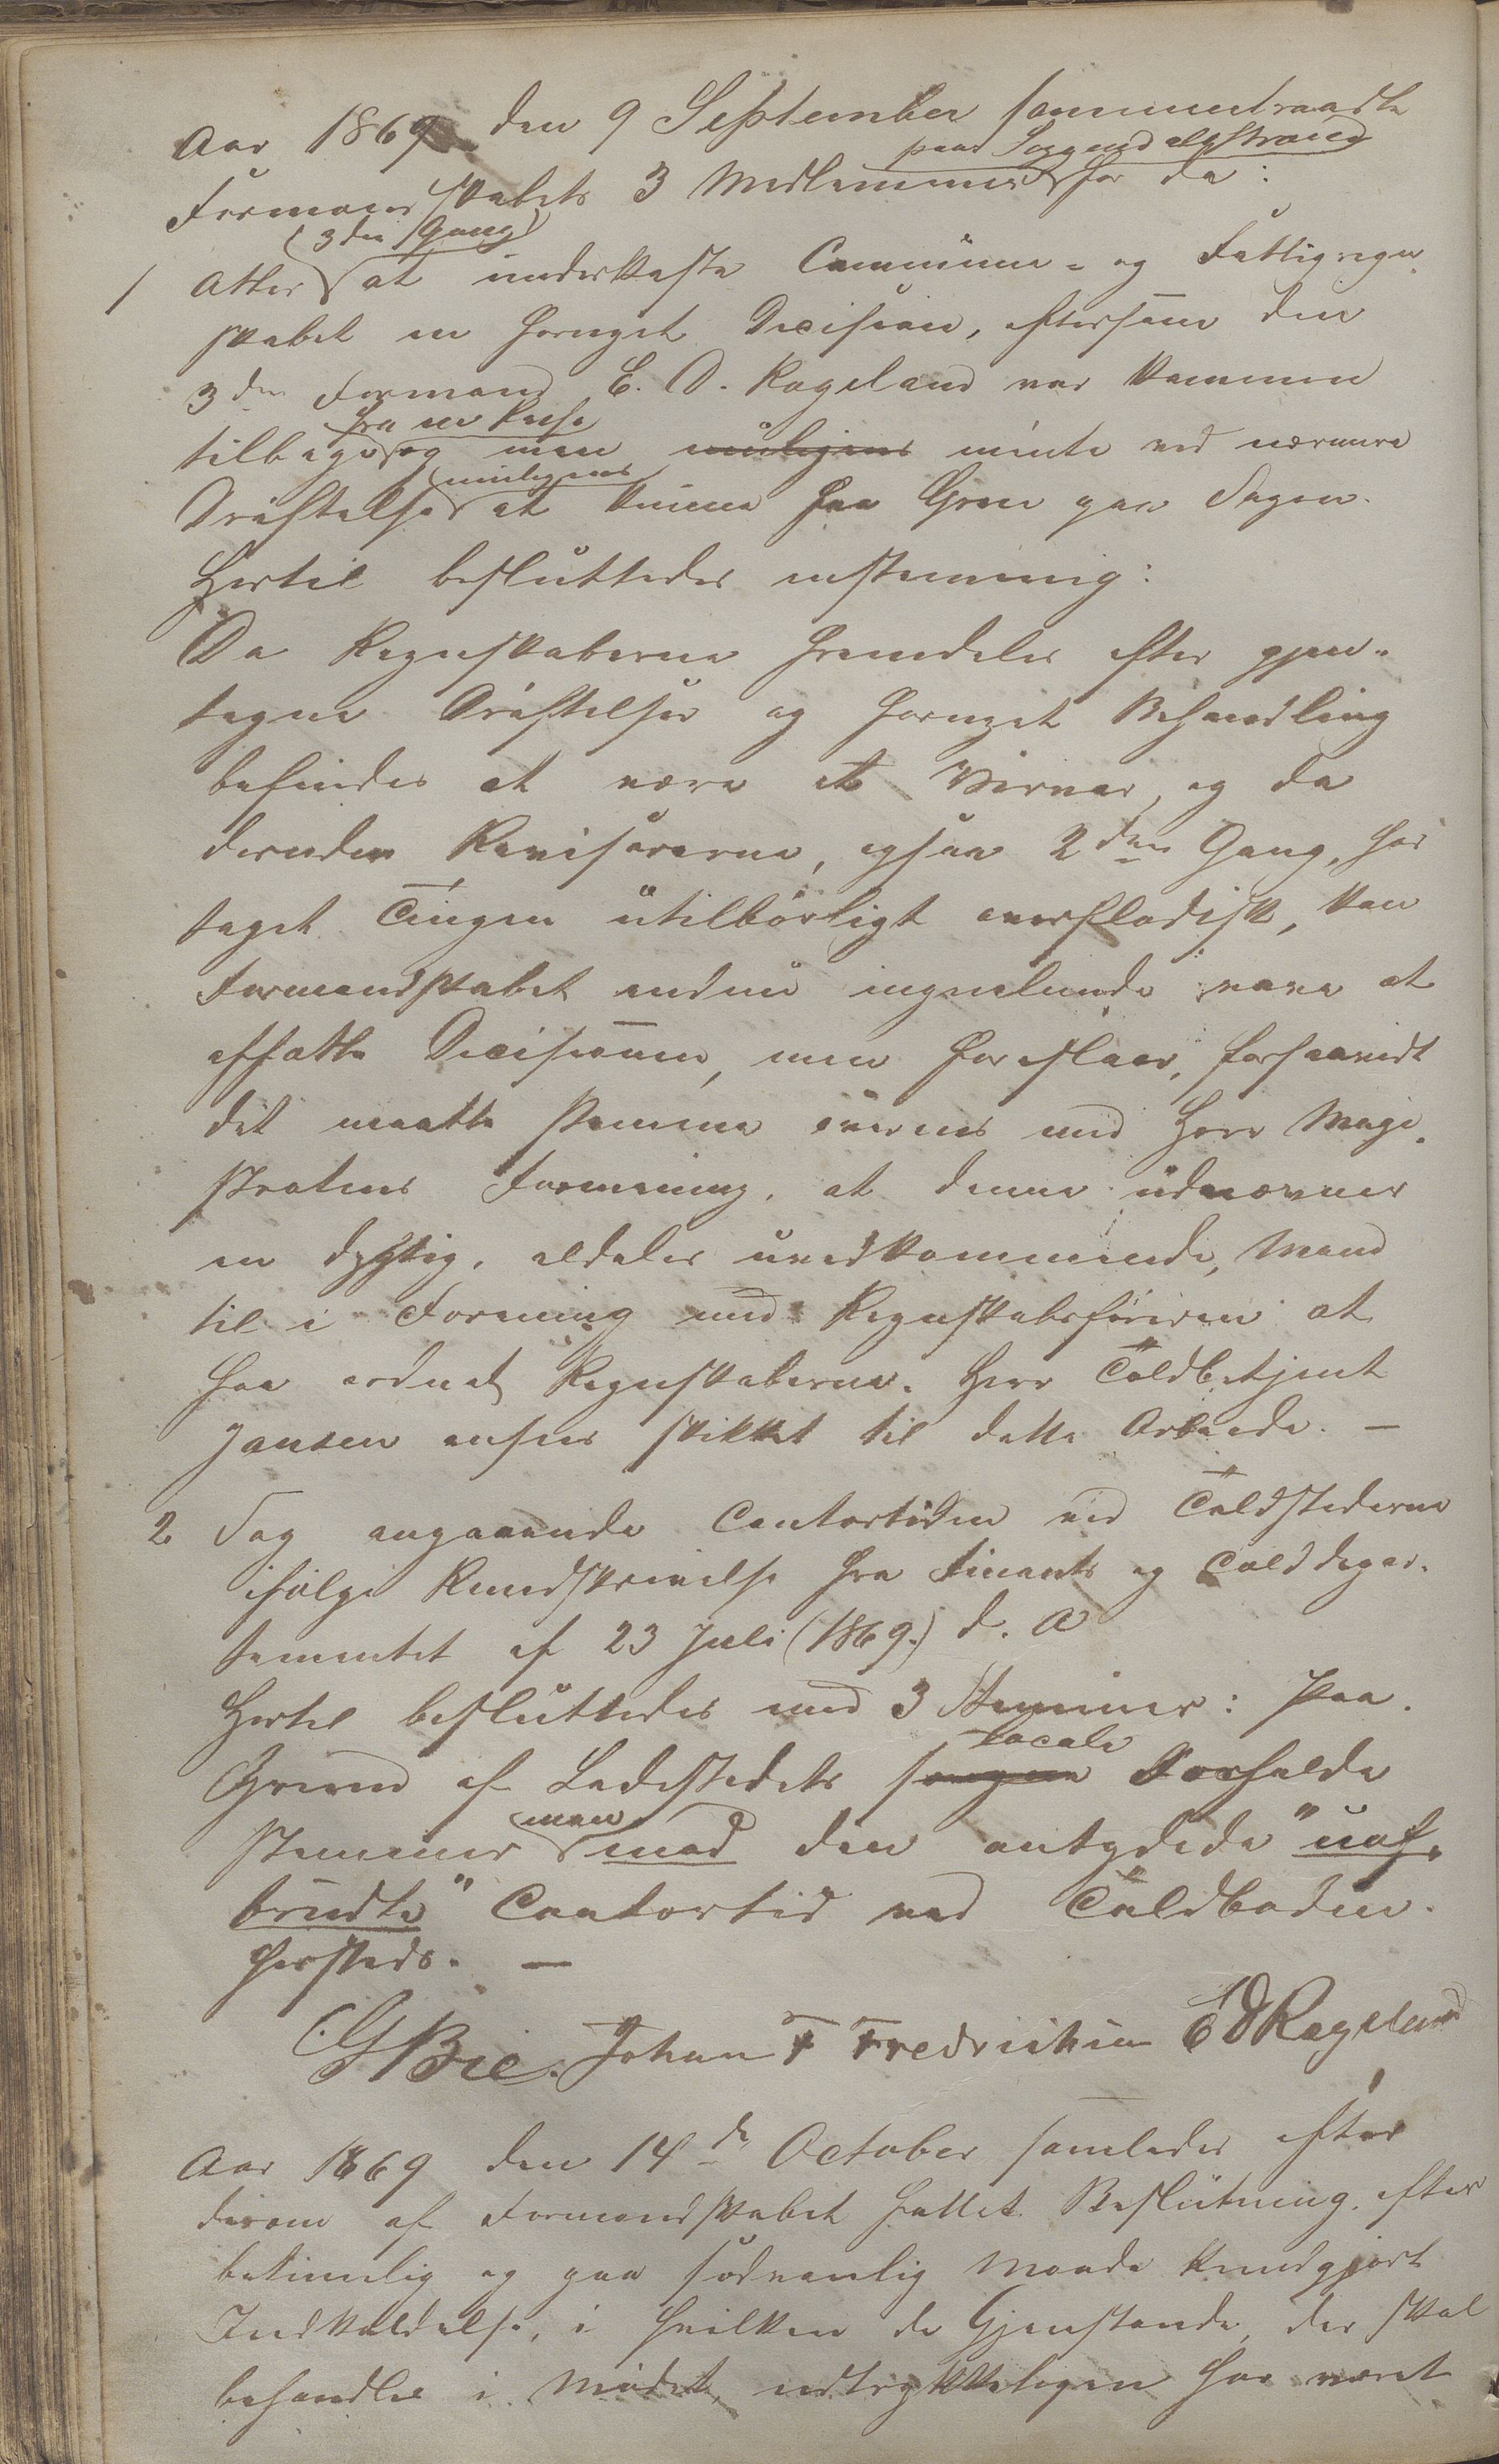 Aar 1869 den 9 September sammentraadte
paa Soggendalsstrand
Formandskabets 3 Medlemmer for da:
3die Gang
1 Atter at underkaste Commune- og Fattigregn-
skabet en fornyet Decision, eftersom den
3die Formand E. O. Rageland var kommen
fra en Reise
tilbage og man muligens mente ved nærmere
muligens
Drøftelse at kunne faa Greie paa Sagen.
Hertil besluttedes enstemmig:
Da Regnskaberne fremdeles efter gjen-
tagne Drøftelser og fornyet Behandling
befindes at være et Virvar, og da
desuden Revisorerne, ogsaa 2den Gang, har
taget Tingen utilbørligt overfladisk, kan
Formandskabet endnu ingenlunde vove at
affatte Decisionen, men foreslaar, forsaavidt
det maatte stemme overens med Herr Magi-
stratens Formening, at denne udnævner
en dygtig, aldeles uvedkommende, Mand
til i Forening med Regnskabsføreren at
faa ordnet Regnskaberne. Herr Toldbetjent
Jansen ansees skikket til dette Arbeide. —
2 Sag angaaende Contortiden ved Toldstederne
ifølge Rundskrivelse fra Finants og Tolddepar-
tementet af 23 Juli (1869.) d. A
Hertil besluttedes med 3 Stemmer: Paa
locale
Grund af Ladestedets Forholde
man
stemmer mod den antydede "uaf-
brudte" Contortid ved Toldboden
hersteds. —
C. G Bie. Johan F Fredriksen E O Rageland
Aar 1869 den 14de October samledes efter
derom af Formandskabet fattet Beslutning, efter
betimelig og paa sædvanlig Maade kundgjort
Indkaldelse, i hvilken de Gjenstande, der skal
behandles i Mødet, udtrykkeligen har været